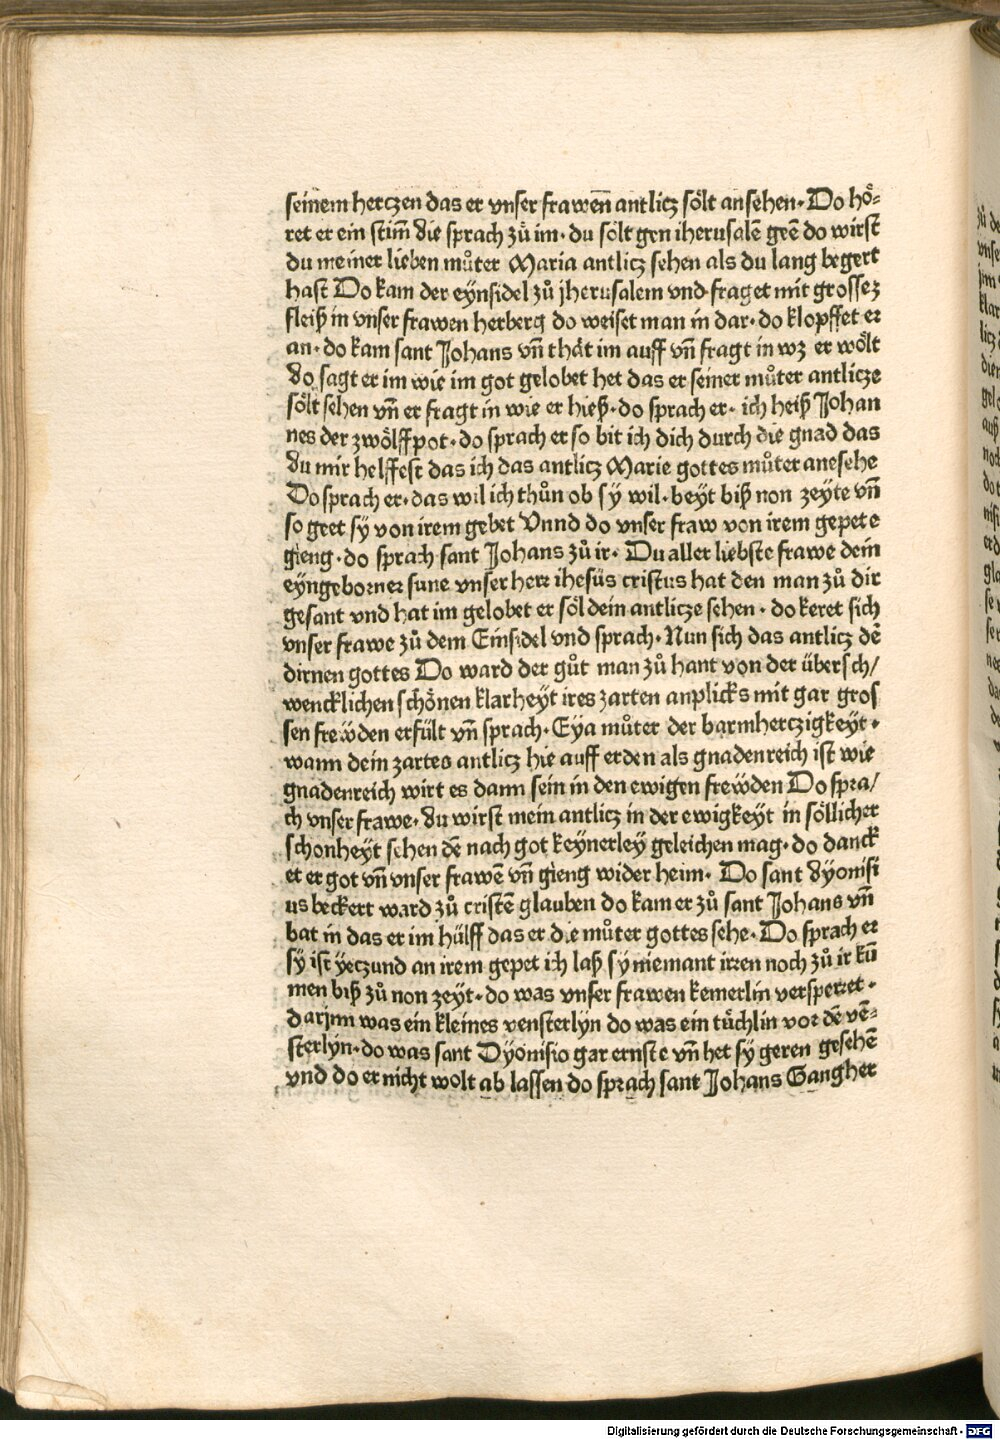 seinem hertzen das er vnser frawen̄ antlicz sölt ansehen· Do hö⸗
ret er ein stim̄ die sprach zů im· du sölt gen iherusalē geē do wirst
du meiner lieben můter Maria antlicz sehen als du lang begert
hast Do kam der eÿnsidel zů jherusalem vnd fraget mit grossez
fleiß in vnser frawen herberg do weiset man in dar· do klopffet er
an· do kam sant Johans vn̄ thät im auff vn̄ fragt in wz er wölt
do sagt er im wie im got gelobet het das er seiner můter antlicze
sölt sehen vn̄ er fragt in wie er hieß· do sprach er· ich heiß Johan
nes der zwölffpot· do sprach er so bit ich dich durch die gnad das
du mir helffest das ich das antlicz Marie gottes můter anesehe
Do sprach er· das wil ich thůn ob sÿ wil· beÿt biß non zeÿte vn̄
so geet sÿ von irem gebet Vnnd do vnser fraw von irem gepete
gieng· do sprach sant Johans zů ir· Du aller liebste frawe dein
eÿngeborner sune vnser herr ihesus cristus hat den man zů dir
gesant vnd hat im gelobet er söl dein antlicze sehen· do keret sich
vnser frawe zů dem Einsidel vnd sprach· Nun sich das antlicz dē
dirnen gottes Do ward der gůt man zů hant von der übersch/
wencklichen schönen klarheÿt ires zarten anplicks mit gar gros
sen frewden erfült vn̄ sprach· Eÿa můter der barmherczigkeÿt·
wann dein zartes antlicz hie auff erden als gnadenreich ist wie
gnadenreich wirt es dann sein in den ewigen frewden Do spra/
ch vnser frawe· du wirst mein antlicz in der ewigkeÿt in söllicher
schonheÿt sehen dē nach got keÿnerley geleichen mag· do danck
et er got vn̄ vnser frawē vn̄ gieng wider heim· Do sant dÿonisi
us beckert ward zů cristē glauben do kam er zů sant Johans vn̄
bat in das er im hülff das er die můter gottes sehe· Do sprach er
sÿ ist ÿeczund an irem gepet ich laß sÿ niemant irren noch zů ir kū
men biß zů non zeÿt· do was vnser frawen kemerlin versperret·
darjnn was ein kleines vensterlÿn do was ein tüchlin vor dē vē⸗
sterlÿn· do was sant Dÿonisio gar ernste vn̄ het sÿ geren gesehē
vnd do er nicht wolt ab lassen do sprach sant Johans Gang her
Digitalisierung gefördert durch die Deutsche Forschungsgemeinschaft - DFG